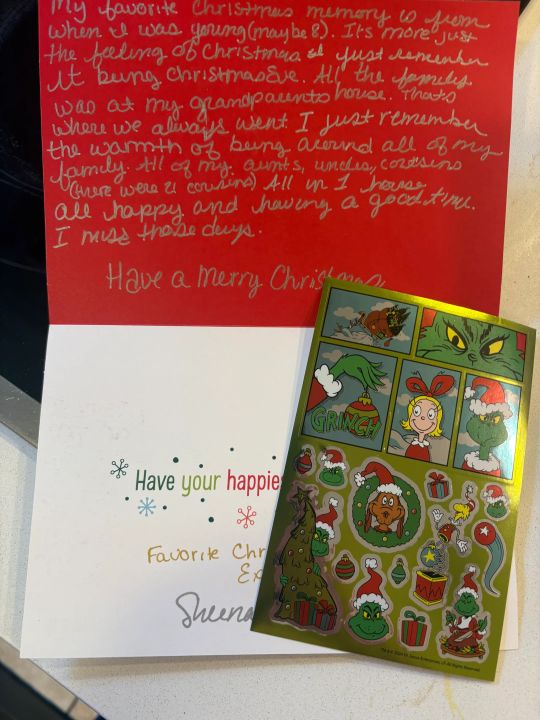 My favorite Christmas memory is from
when I was young (maybe 8). It's more just
the feeling of Christmas & I just remember
it being Christmas Eve. All the family
was at my grandparents house. Thats
where we always went I just remember
the warmth of being around all of my
family. All of my aunts, uncles, cousins
(there were 21 cousins) All in 1 house
all happy and having a good time.
I miss those days.
Have a Merry Christmas
GRINCH
Have your happies
Favorite Chr
Ex
Sheena